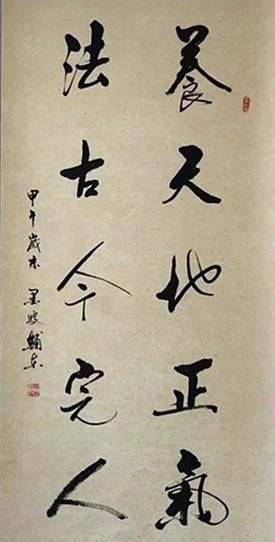 養天地正氣
法古今完人
甲午歲末